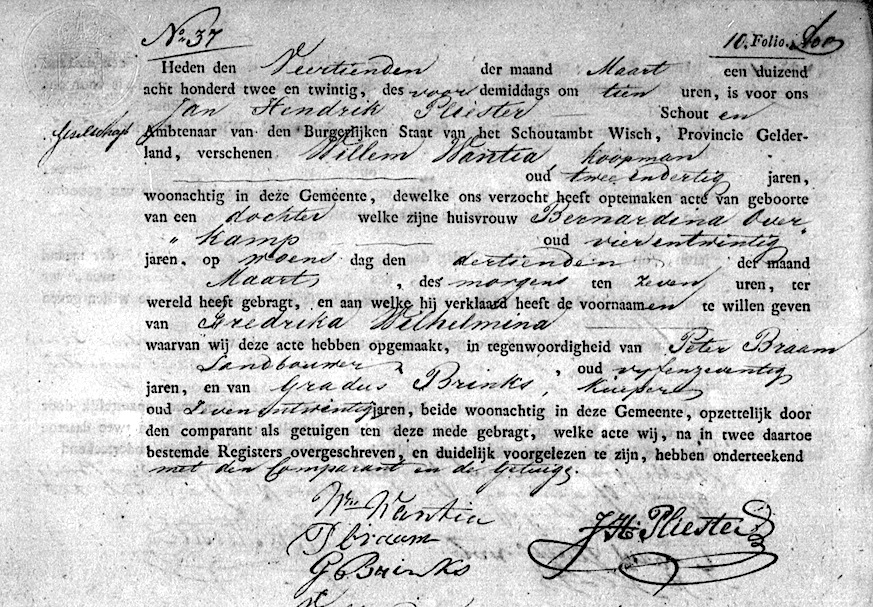 No. 37
10. Folio.
Heden den Veertienden der maand Maart een duizend
acht honderd twee en twintig, des voordemiddags om tien uren, is voor ons
Jan Hendrik Pliester Schout en
Ambtenaar van den Burgerlijken Staat van het Schoutambt Wisch, Provincie Gelder-
land, verschenen Willem Wantia, Koopman
oud twee endertig jaren,
woonachtig in deze Gemeente, dewelke ons verzocht heeft optemaken acte van geboorte
van een dochter welke zijne huisvrouw Bernardina Over
" kamp oud vier entwintig
jaren, op woens dag den dertienden der maand
Maart, des morgens ten zeven uren, ter
wereld heeft gebragt, en aan welke hij verklaard heeft de voornaamen te willen geven
van Fredrika Wilhelmina
waarvan wij deze acte hebben opgemaakt, in tegenwoordigheid van Peter Braam
Landbouwer, oud vyfenzeventig
jaren, en van Gradus Brinks, Kuiper
oud Zevenentwintig jaren, beide woonachtig in deze Gemeente, opzettelijk door
den comparant als getuigen ten deze mede gebragt, welke acte wij, na in twee daartoe
bestemde Registers overgeschreven, en duidelijk voorgelezen te zijn, hebben onderteekend
met den Comparant en de Getuigen.
Wm Wantia
P braam
J H Pliester
G Brinks